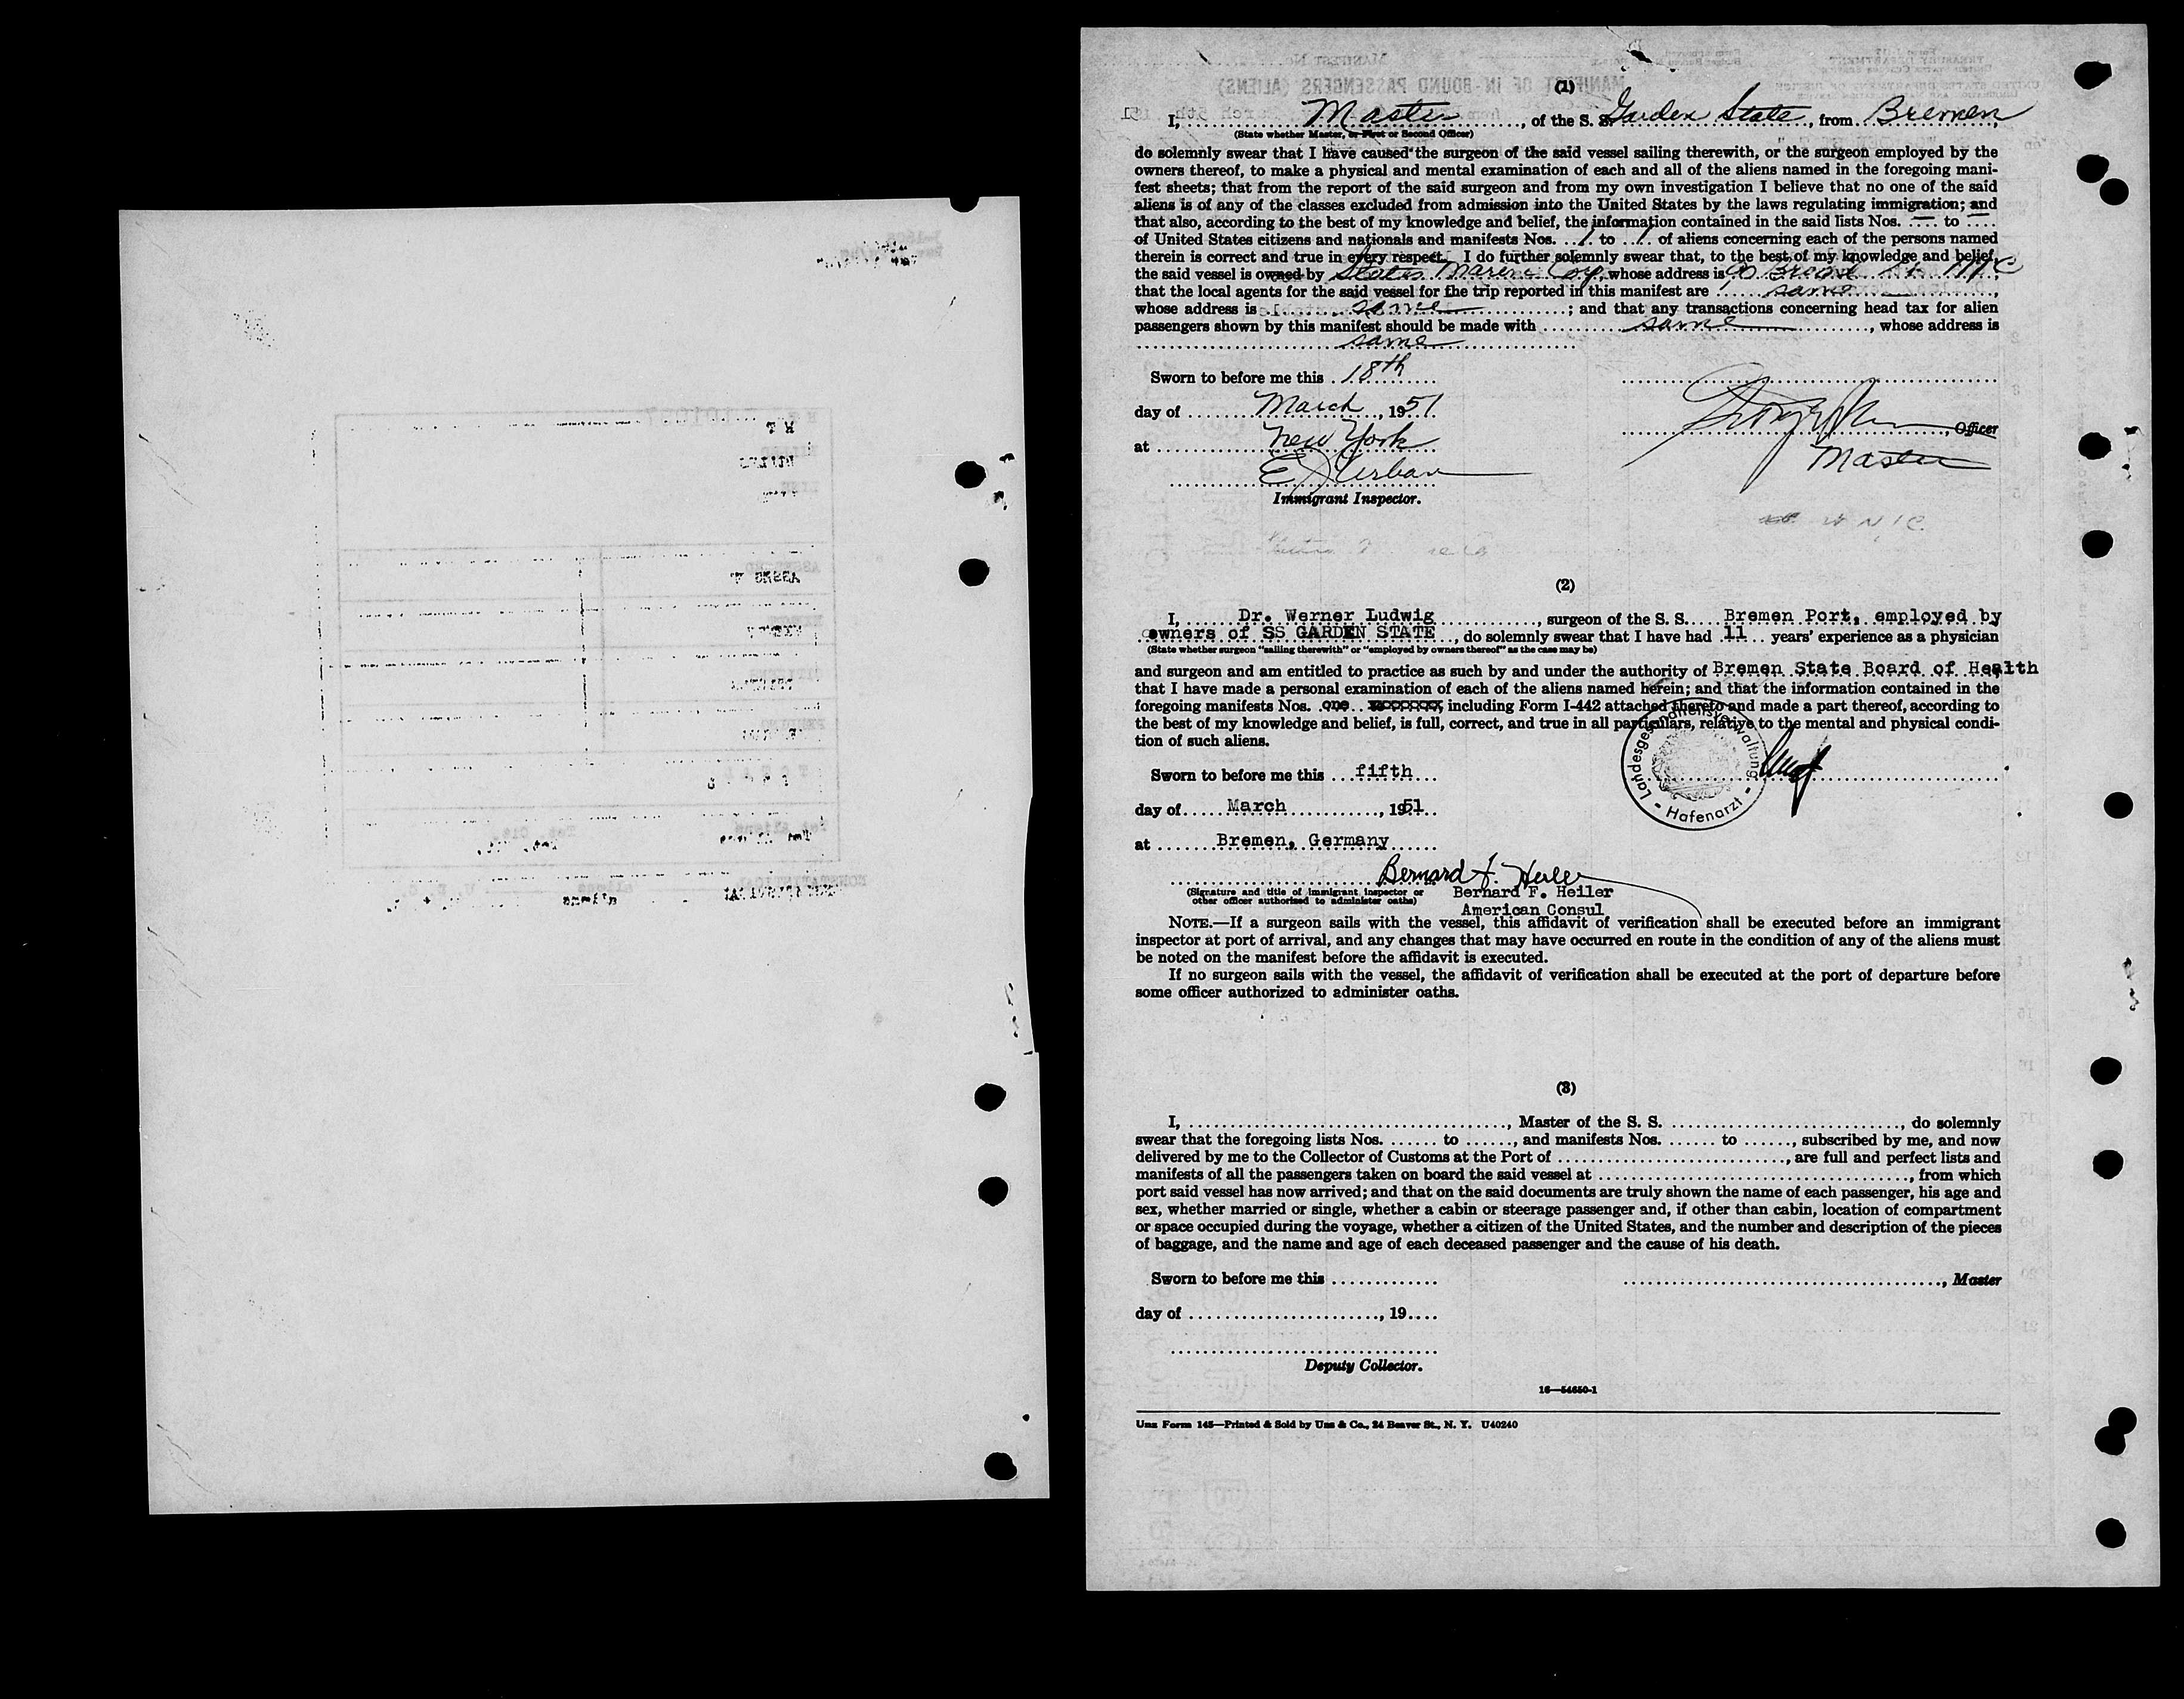 (1)
I, Master, of the S. S. Garden State, from Bremen,
(State whether Master, or First or Second Officer)
do solemnly swear that I have caused the surgeon of the said vessel sailing therewith, or the surgeon employed by the
owners thereof, to make a physical and mental examination of each and all of the aliens named in the foregoing mani-
fest sheets; that from the report of the said surgeon and from my own investigation I believe that no one of the said
aliens is of any of the classes excluded from admission into the United States by the laws regulating immigration; and
that also, according to the best of my knowledge and belief, the information contained in the said lists Nos. — to —
of United States citizens and nationals and manifests Nos. 1 to 1 of aliens concerning each of the persons named
therein is correct and true in every respect. I do further solemnly swear that, to the best of my knowledge and belief,
the said vessel is owned by States Marine Corp, whose address is 90 Broad St. NYC
that the local agents for the said vessel for the trip reported in this manifest are same,
whose address is same; and that any transactions concerning head tax for alien
passengers shown by this manifest should be made with same, whose address is
same
Sworn to before me this 18th
day of March, 1951
at New York
, Officer
Master
E J Urban
Immigrant Inspector.
(2)
I, Dr. Werner Ludwig, surgeon of the S. S. Bremen Port, employed by
owners of SS GARDEN STATE, do solemnly swear that I have had 11 years' experience as a physician
(State whether surgeon "sailing therewith" or "employed by owners thereof" as the case may be)
and surgeon and am entitled to practice as such by and under the authority of Bremen State Board of Health
that I have made a personal examination of each of the aliens named herein; and that the information contained in the
foregoing manifests Nos. one xxxxxxxx, including Form I-442 attached thereto and made a part thereof, according to
the best of my knowledge and belief, is full, correct, and true in all particulars, relative to the mental and physical condi-
tion of such aliens.
Landesgesundheitsverwaltung - Hafenarzt -
Sworn to before me this fifth
day of March, 1951
at Bremen, Germany
Bernard F. Heiler
(Signature and title of immigrant inspector or
other officer authorized to administer oaths)
Bernard F. Heiler
American Consul
NOTE.—If a surgeon sails with the vessel, this affidavit of verification shall be executed before an immigrant
inspector at port of arrival, and any changes that may have occurred en route in the condition of any of the aliens must
be noted on the manifest before the affidavit is executed.
If no surgeon sails with the vessel, the affidavit of verification shall be executed at the port of departure before
some officer authorized to administer oaths.
(3)
I, ........, Master of the S. S. ........, do solemnly
swear that the foregoing lists Nos. ....... to ......, and manifests Nos. ....... to ......, subscribed by me, and now
delivered by me to the Collector of Customs at the Port of ........, are full and perfect lists and
manifests of all the passengers taken on board the said vessel at ........, from which
port said vessel has now arrived; and that on the said documents are truly shown the name of each passenger, his age and
sex, whether married or single, whether a cabin or steerage passenger and, if other than cabin, location of compartment
or space occupied during the voyage, whether a citizen of the United States, and the number and description of the pieces
of baggage, and the name and age of each deceased passenger and the cause of his death.
Sworn to before me this ............. ........, Master
day of ........, 19....
Deputy Collector.
16—54650-1
Unz Form 145—Printed & Sold by Unz & Co., 24 Beaver St., N. Y. U40240